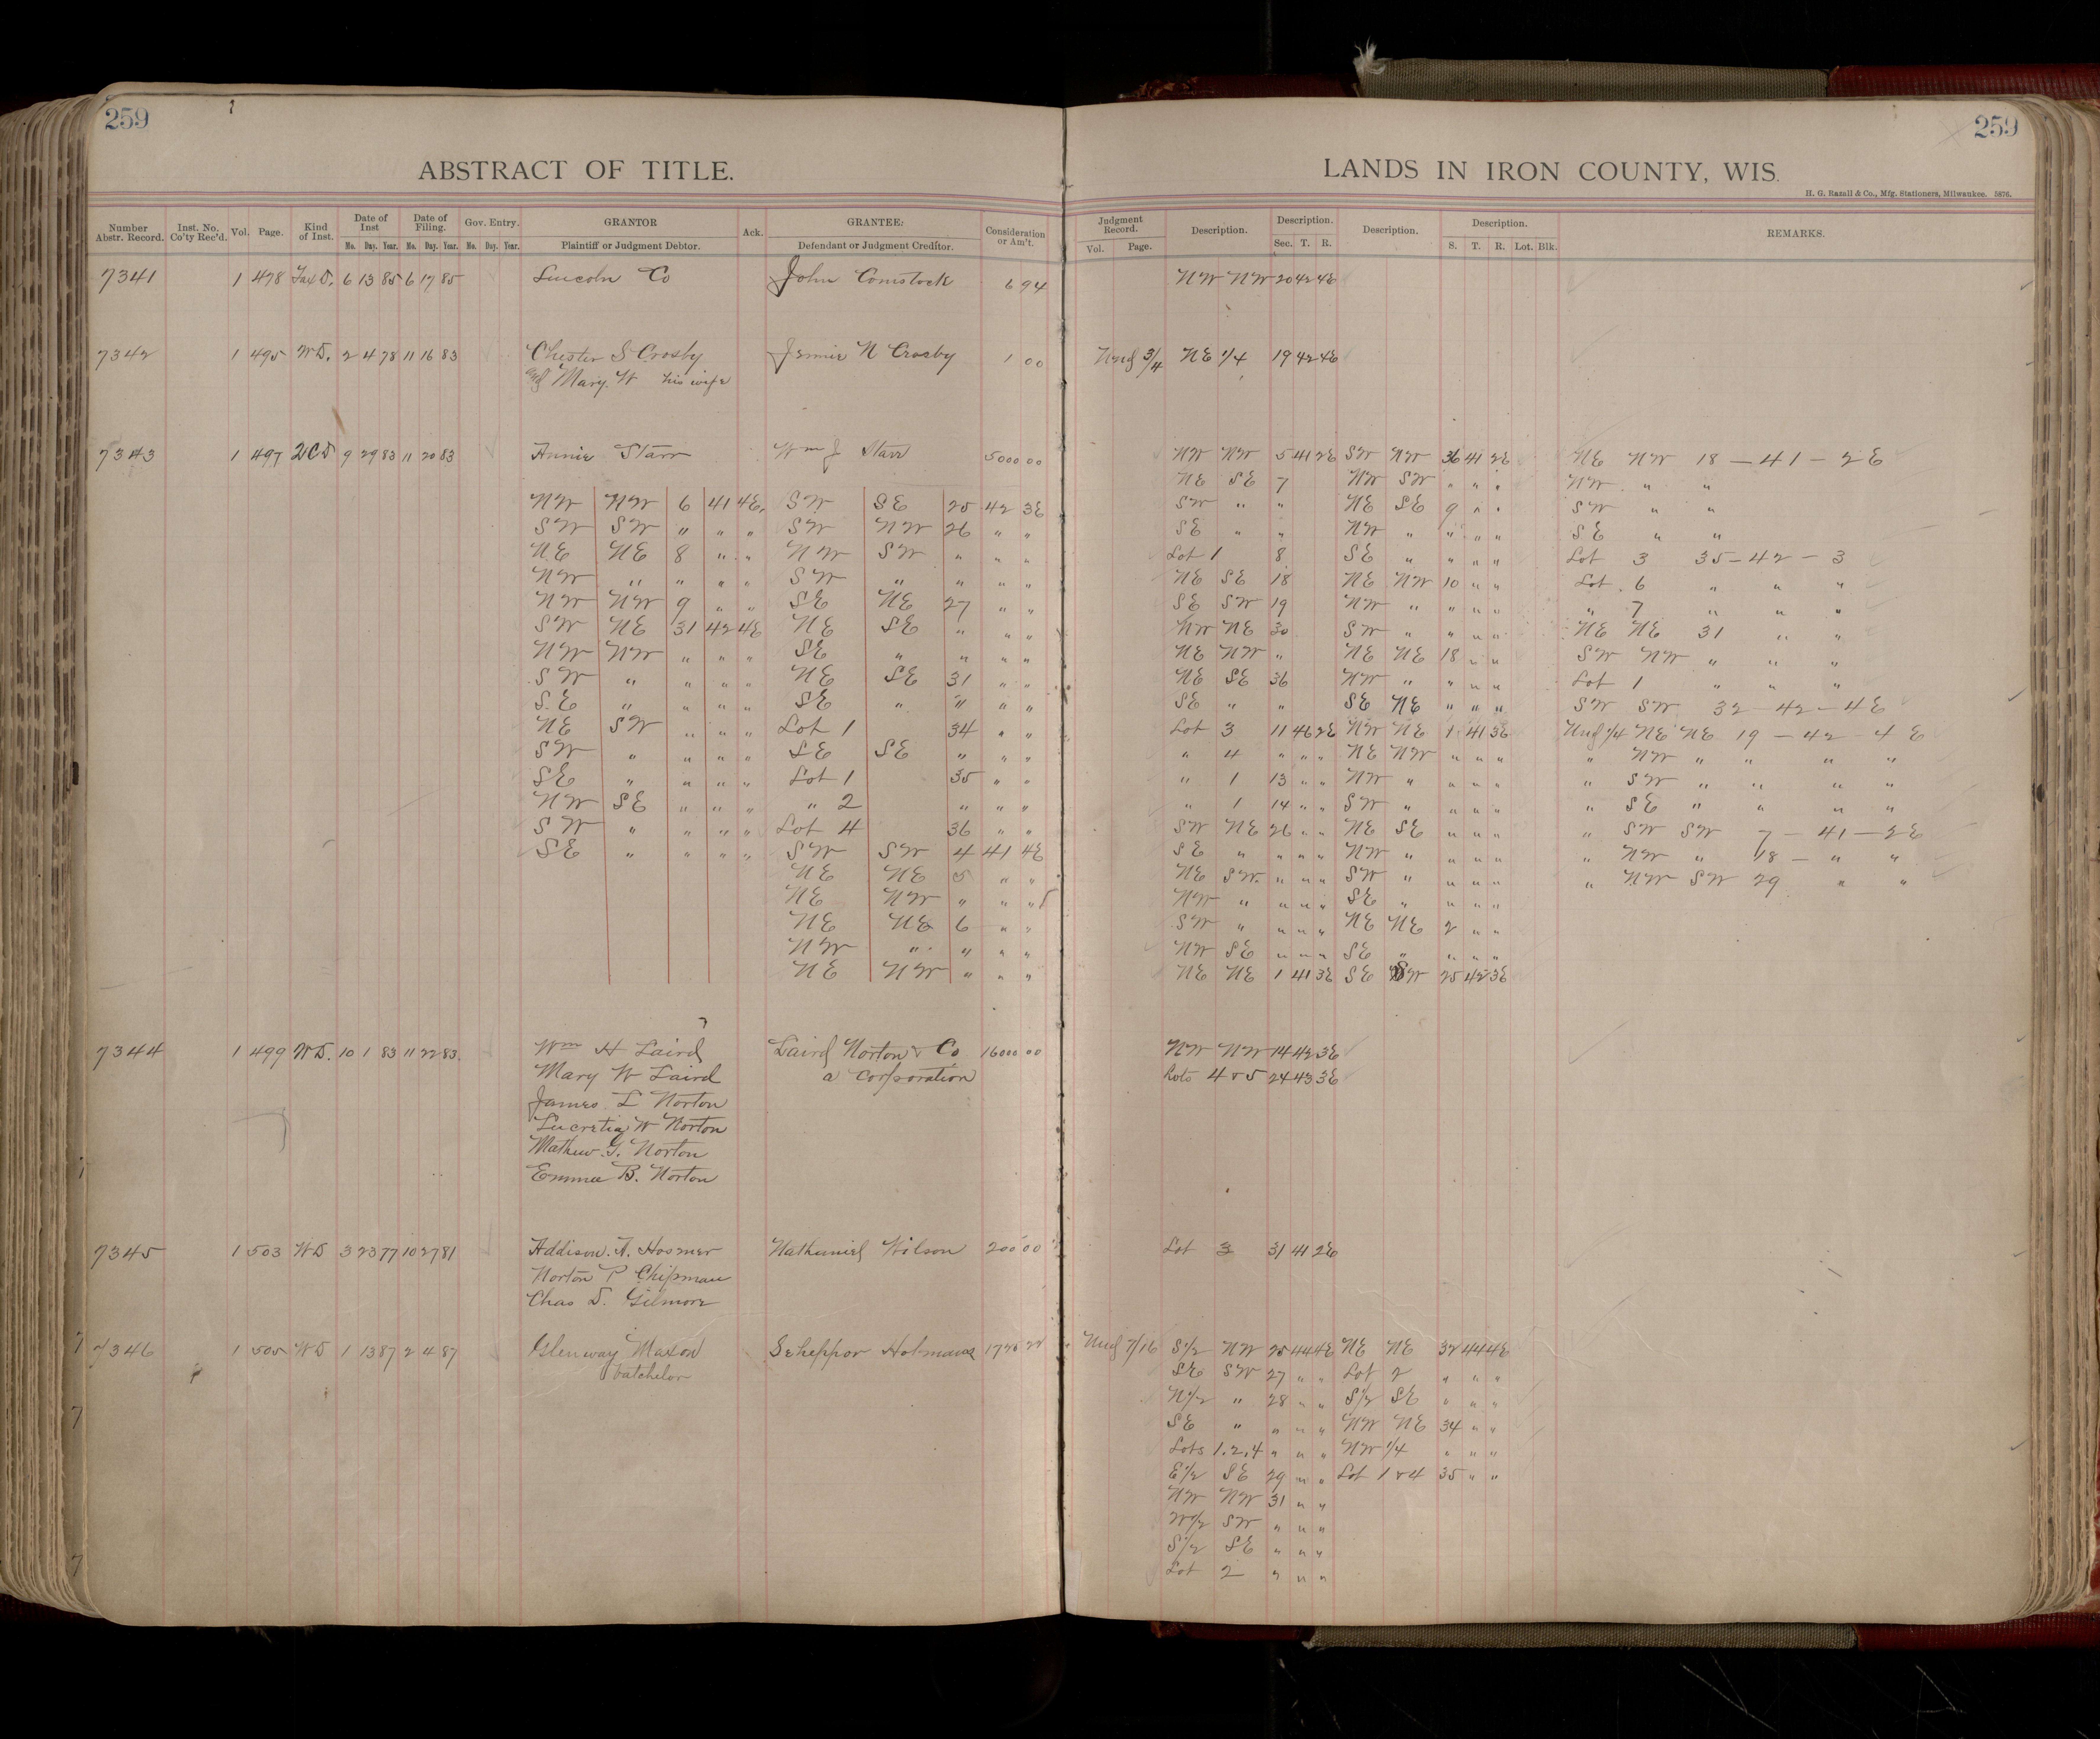 259
259
ABSTRACT OF TITLE.
LANDS IN IRON COUNTY, WIS.
H. G. Razall & Co., Mfg. Stationers, Milwaukee. 5876.
Number Abstr. Record. Inst. No. Co'ty Rec'd. Vol. Page. Kind of Inst. Date of Inst Mo. Day. Year. Date of Filing. Mo. Day. Year. Gov. Entry. Mo. Day. Year. GRANTOR Plaintiff or Judgment Debtor. Ack. GRANTEE: Defendant or Judgment Creditor. Consideration or Am't.
Judgment Record. Vol. Page. Description. Description. Sec. T. R. Description. Description. S. T. R. Lot. Blk. REMARKS.
7341 1 478 Tax D. 6 13 85 6 17 85 Lincoln Co John Comstock 6 94 NW NW 20 42 4E
7342 1 495 WD. 2 4 78 11 16 83 Chester S Crosby Jennie N Crosby 1 00 Und 3/4 NE 1/4 19 42 4E
and Mary. W his wife
7343 1 497 QCD 9 29 83 11 20 83 Annie Starr Wm J Starr 5000 00 NW NW 5 41 2E SW NW 36 41 2E NE NW 18 — 41 — 2E
NE SE 7 NW SW " " " NW " "
NW NW 6 41 4E. SW SE 25 42 3E SW " " NE SE 9 " " SW " "
SW SW " " " SW NW 26 " " SE " " NW " " " " SE " "
NE NE 8 " " NW SW " " " Lot 1 8 SE " " " " Lot 3 35 — 42 — 3
NW " " " " SW " " " " NE SE 18 NE NW 10 " " Lot. 6 " " "
NW NW 9 " " SE NE 27 " " SE SW 19 NW " " " " " 7 " " "
SW NE 31 42 4E NE SE " " " NW NE 30 SW " " " " NE NE 31 " "
NW NW " " " SE " " " " NE NW " NE NE 18 " " SW NW " " "
SW " " " " NE SE 31 " " NE SE 36 NW " " " " Lot 1 " " "
S.E " " " " SE " " " " SE " " SE NE " " " SW SW 32 — 42 — 4E
NE SW " " " Lot 1 34 " " Lot 3 11 46 2E NW NE 1 41 3E Und 1/4 NE NE 19 — 42 4E
SW " " " " SE SE " " " " 4 " " " NE NW " " " " NW " " " "
SE " " " " Lot 1 35 " " " 1 13 " " NW " " " " " SW " " " "
NW SE " " " " 2 " " " " 1 14 " " SW " " " " " SE " " " "
SW " " " " Lot 4 36 " " SW NE 26 " " NE SE " " " " SW SW 7 — 41 — 2E
SE " " " " SW SW 4 41 4E SE " " " " NW " " " " " NW " 18 — " "
NE NE 5 " " NE SW. " " " SW " " " " " NW SW 29 " "
NE NW " " " NW " " " " SE " " " "
NE NE 6 " " SW " " " " NE NE 2 " "
NW " " " " NW SE " " " SE " " " "
NE NW " " " NE NE 1 41 3E SE SW 25 42 3E
7344 1 499 WD. 10 1 83 11 22 83. Wm H Laird Laird Norton & Co 16000 00 NW NW 14 42 3E
Mary W Laird a corporation Lots 4 & 5 24 43 3E
James L Norton
Lucretia W Norton
Mathew. G. Norton
Emma B. Norton
7345 1 503 WD 3 23 77 10 27 81 Addison. A. Hosmer Nathaniel Wilson 200 00 Lot 3 31 41 2E
Norton P Chipman
Chas D. Gilmore
7346 1 505 WD 1 13 87 2 4 87 Glenway Maxon Holmans Und 7/16 S1/2 NW 25 44 4E NE NE 32 44 4E
batchelor SE SW 27 " " Lot 2 " " "
N1/2 " 28 " " S1/2 SE " " "
SE " " " " NW NE 34 " "
Lots 1. 2. 4 " " " NW 1/4 " " "
E1/2 SE 29 " " Lot 1 & 4 35 " "
NW NW 31 " "
W1/2 SW " " "
S1/2 SE " " "
Lot 2 " " "